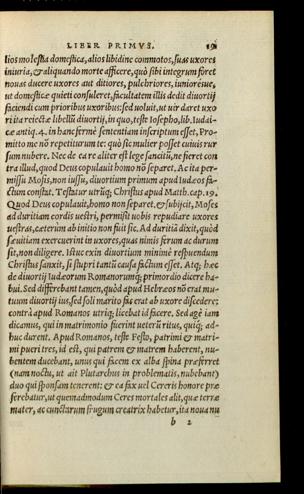 LIBER PRIMVS. 19
lios molestia domestica, alios libidine commotos, suas uxores
iniuria, & aliquando morte afficere, quò sibi integrum foret
nouas ducere uxores aut ditiores, pulchriores, iunioresue,
ut domesticæ quieti consuleret, facultatem illis dedit diuortij
faciendi cum prioribus uxoribus: sed uoluit, ut uir daret uxo
ri ita reiectæ libellũ diuortij, in quo, teste Iosepho, lib. Iudai-
cæ antiq. 4. in hanc fermè sententiam inscriptum esset, Pro-
mitto me nõ repetiturum te: quò sic mulier posset cuiuis rur
sum nubere. Nec de ea re aliter est lege sancitũ, ne fieret con
tra illud, quod Deus copulauit homo nõ separet. Ac ita per-
missu Mosis, non iussu, diuortium primum apud Iudæos fa-
ctum constat. Testatur utrũq; Christus apud Matth. cap. 19.
Quod Deus copulauit, homo non separet. & subijcit, Moses
ad duritiam cordis uestri, permisit uobis repudiare uxores
uestras, cæterum ab initio non fuit sic. Ad duritiã dixit, quòd
sæuitiam exercuerint in uxores, quas nimis ferum ac durum
sit, non diligere. Istuc enim diuortium minimè respuendum
Christus sanxit, si stupri tantũ causa factum esset. Atq; hæc
de diuortij Iudæorum Romanorumq; primordio dicere ha-
bui. Sed differebant tamen, quòd apud Hebræos nõ erat mu-
tuum diuortij ius, sed soli marito fas erat ab uxore discedere:
contrà apud Romanos utriq; licebat id facere. Sed agè iam
dicamus, qui in matrimonio fuerint ueterũ ritus, quiq; ad-
huc durent. Apud Romanos, teste Festo, patrimi & matri-
mi pueri tres, id est, qui patrem & matrem haberent, nu-
bentem ducebant, unus qui facem ex alba spina præferret
(nam noctu, ut ait Plutarchus in problematis, nubebant)
duo qui sponsam tenerent: & ea fax uel Cereris honore præ
ferebatur, ut quemadmodum Ceres mortales alit, quæ terræ
mater, ac cunctarum frugum creatrix habetur, ita noua nu
b 2